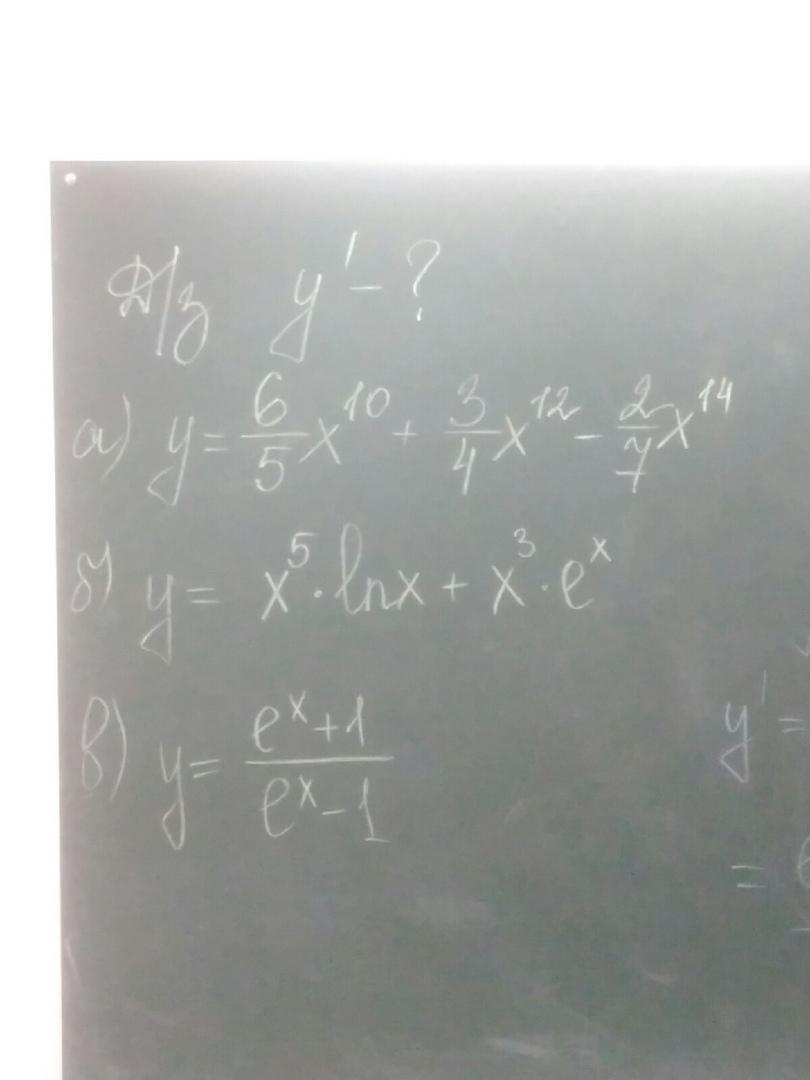 Д/з y' - ?
а) y = 6/5 x^10 + 3/4 x^12 - 2/7 x^14
б) y = x^5 · lnx + x^3 · e^x
в) y = (e^x + 1)/(e^x - 1)
y' =
=